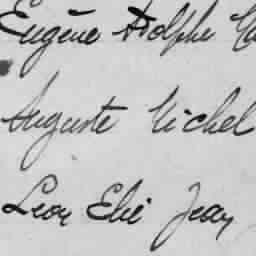 Eugène Adolphe
Auguste Michel
Leon Elie Jean